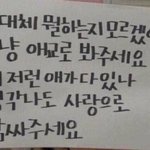 대체 뭘하는지 모르겠
냥 애교로 봐주세요
저런 애가 다있나
각나도 사랑으로
싸주세요